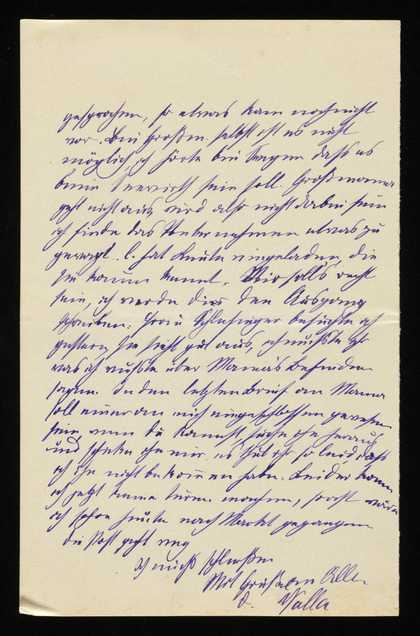 gesprochen, so etwas kam noch nicht
vor. Bei Großen selbst ist es nicht
möglich, ich hörte bei Sagen daß es
beim sein soll. Großmama
geht nicht aus, wird also nicht dabei sein
ich finde das Unternehmen etwas zu
gewagt. C. hat Leute eingeladen, die
sie kaum kennt. Mir solls recht
sein, ich werde dir den Ausgang
schreiben. Frau Schlesinger besuchte ich
gestern, sie sieht gut aus, ich mußte ihr
was ich wußte über Mama's Befinden
sagen. In den letzten Brief an Mama
soll einer an mich eingeschlossen gewesen
sein wenn du kannst, suche ihn heraus
und schicke ihn mir, es thut ihr so leid daß
ich ihn nicht bekommen habe. Leider kann
ich jetzt keine Turen machen, sonst wäre
ich schon heute nach Markt gegangen
die Post geht weg
ich muß schließen
Mit Grüßen an Alle
d. Walla